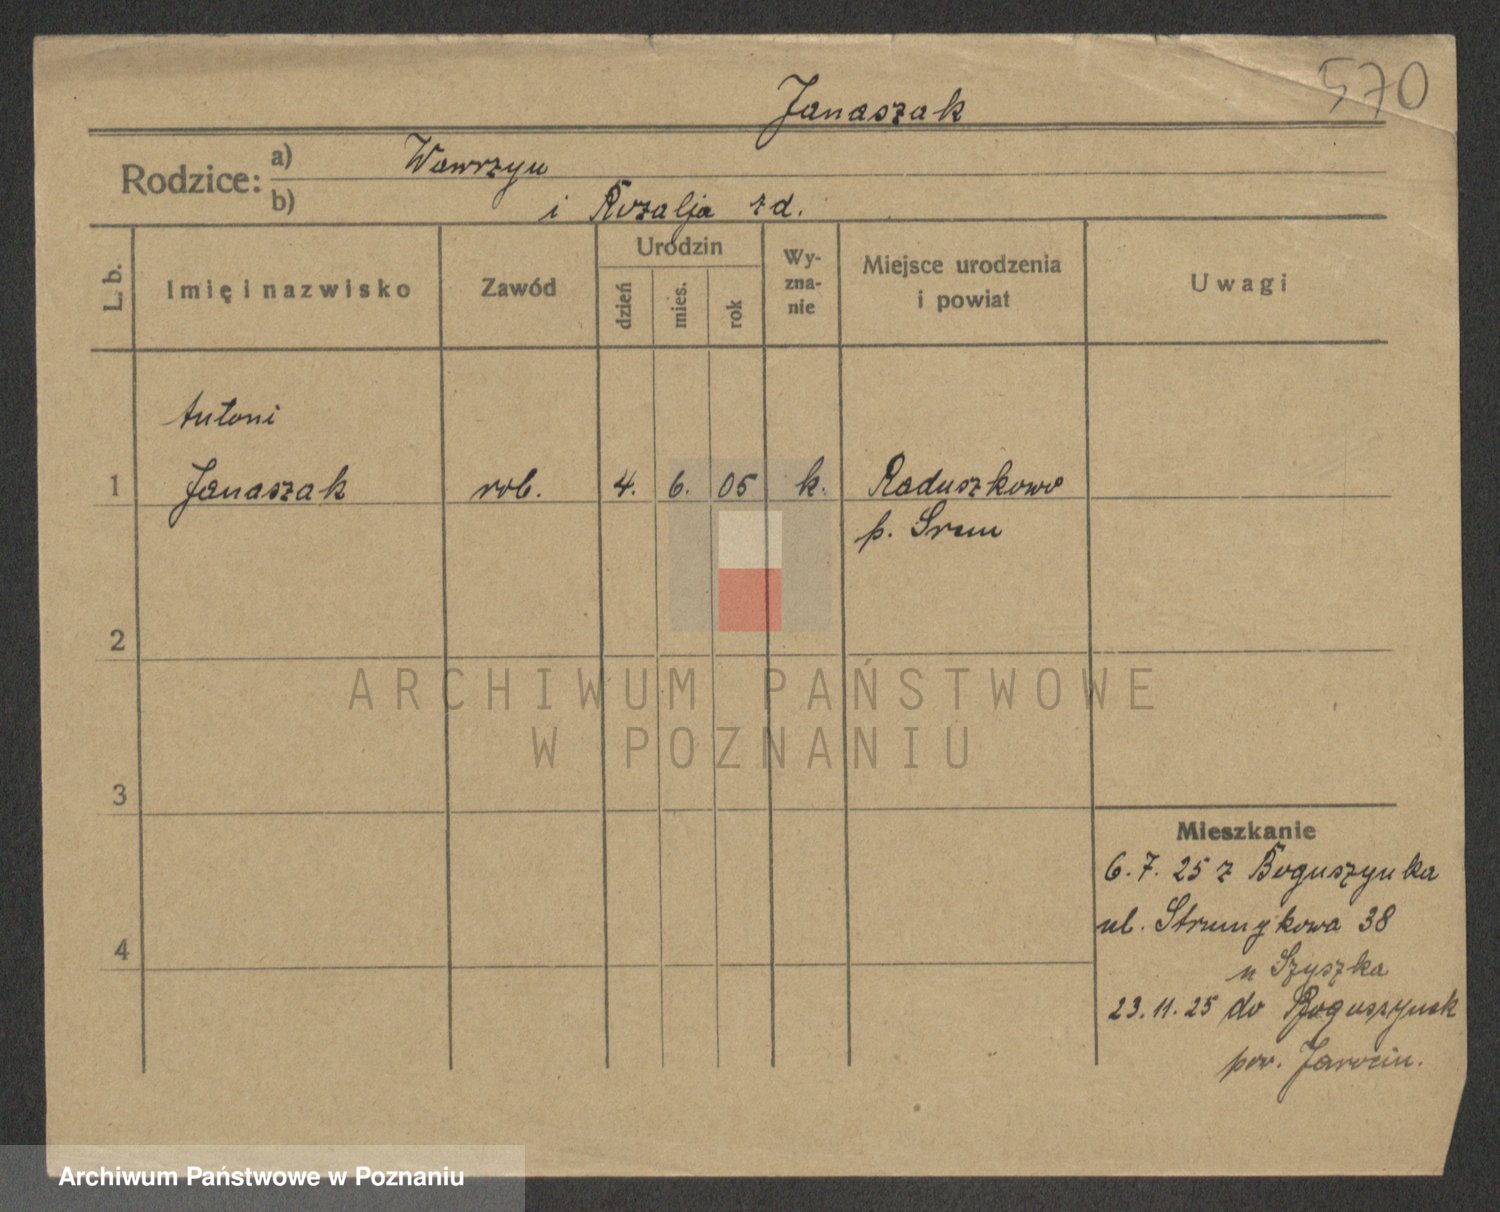 570
Janaszak
Rodzice: a) Wawrzyn
b) i Rozalja zd.
L. b.
Imię i nazwisko
Zawód
Urodzin
dzień
mies.
rok
Wy-
zna-
nie
Miejsce urodzenia
i powiat
Uwagi
Antoni
1 Janaszak rob. 4. 6. 05 k. Raduszkowo
p. Srem
2
3
4
Mieszkanie
6. 7. 25 z Boguszynka
ul. Strumykowa 38
u Szyszka
23. 11. 25 do Boguszynek
pow. Jarocin.
ARCHIWUM PAŃSTWOWE
W POZNANIU
Archiwum Państwowe w Poznaniu